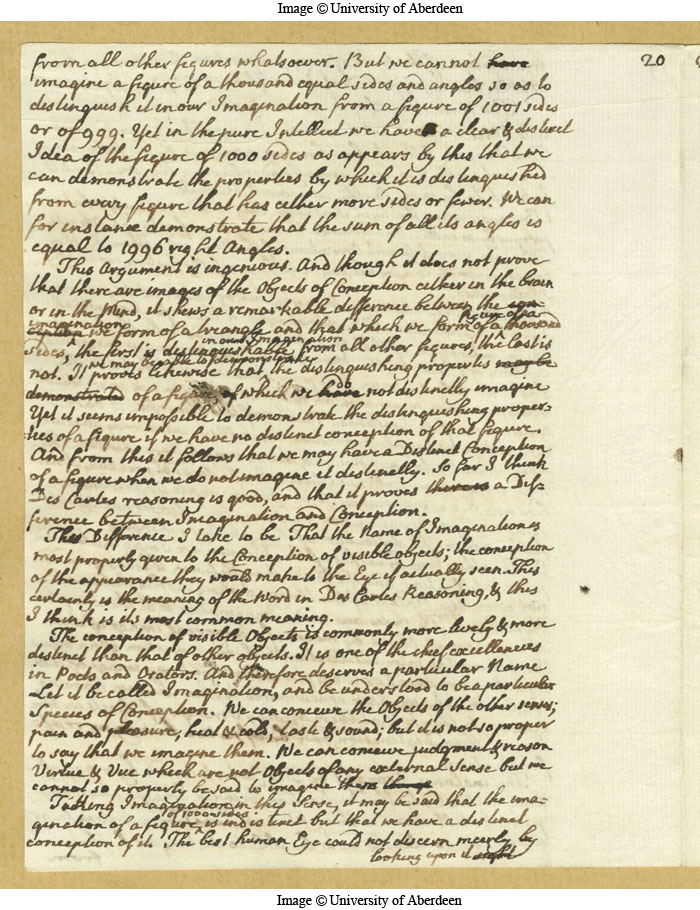 Image © University of Aberdeen
20
from all other figures whatsoever. But we cannot have
imagine a figure of a thousand equal sides and angles so as to
distinguish it in our Imagination from a figure of 1001 sides
or of 999. Yet in the pure Intellect we have a clear & distinct
Idea of the figure of 1000 sides as appears by this that we
can demonstrate the properties by which it is distinguished
from every figure that has either more sides or fewer. We can
for instance demonstrate that the sum of all its angles is
equal to 1996 right Angles.
This Argument is ingenious. And though it does not prove
that there are images of the Objects of Conception either in the brain
or in the Mind, it shews a remarkable difference between the con-
imagination figure of a
ception we form of a triangle and that which we form of a thousand
in our Imagination
sides, the first is distinguishable from all other figures, the last is
we may be able to demonstrate
not. It proves likewise that the distinguishing properties may be
do
demonstrated of a figure of which we have not distinctly imagine
Yet it seems impossible to demonstrate the distinguishing proper-
ties of a figure if we have no distinct conception of that figure.
And from this it follows that we may have a Distinct Conception
of a figure when we do not imagine it distinctly. So far I think
Des Cartes reasoning is good, and that it proves there is a Dif-
ference between Imagination and Conception.
This Difference I take to be That the Name of Imagination is
most properly given to the Conception of visible objects; the conception
of the appearance they would make to the Eye if actually seen. This
certainly is the meaning of the Word in Des Cartes Reasoning, & this
I think is its most common meaning.
The conception of visible Objects is commonly more lively & more
distinct than that of other objects. It is one of the chief excellences
in Poets and Orators. And therefore deserves a particular Name
Let it be called Imagination, and be understood to be a particular
Species of Conception. We can conceive the Objects of the other senses;
pain and pleasure, heat & cold, taste & sound; but it is not so proper
to say that we imagine them. We can conceive judgment & reason
Virtue & Vice which are not Objects of any external Sense but we
cannot so properly be said to imagine them
Taking Imagination in this Sense, it may be said that the ima-
of 1000 sides
gination of a figure is indistinct but that we have a distinct
conception of it. The best human Eye could not discern meerly by
looking upon it sight
Image © University of Aberdeen